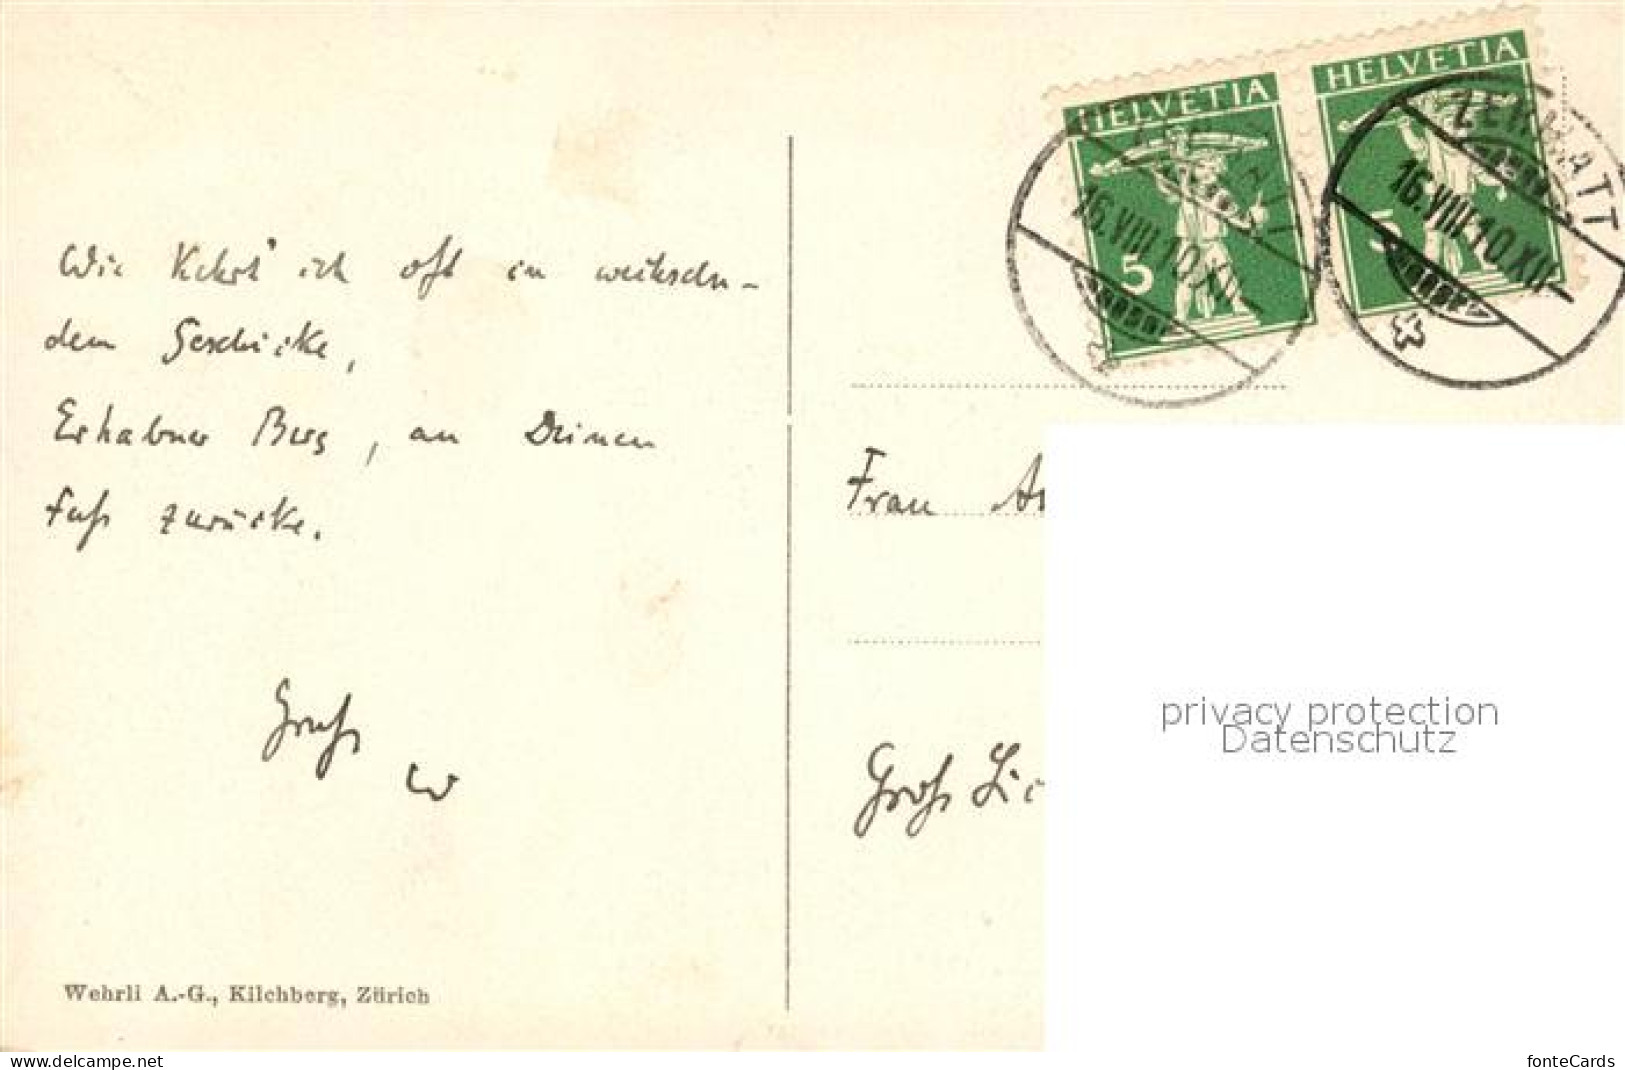 HELVETIA
HELVETIA
ZERMATT
16.VIII 10.XII
5
16.VIII 10.XII
5
Wie Kehrt' ich oft in wechseln-
dem Geschicke,
Erhabner Berg, an Deinen
Fuß zurücke.
Gruß
W
Wehrli A.-G., Kilchberg, Zürich
Frau
Groß Li
privacy protection
Datenschutz
www.delcampe.net
fonteCards